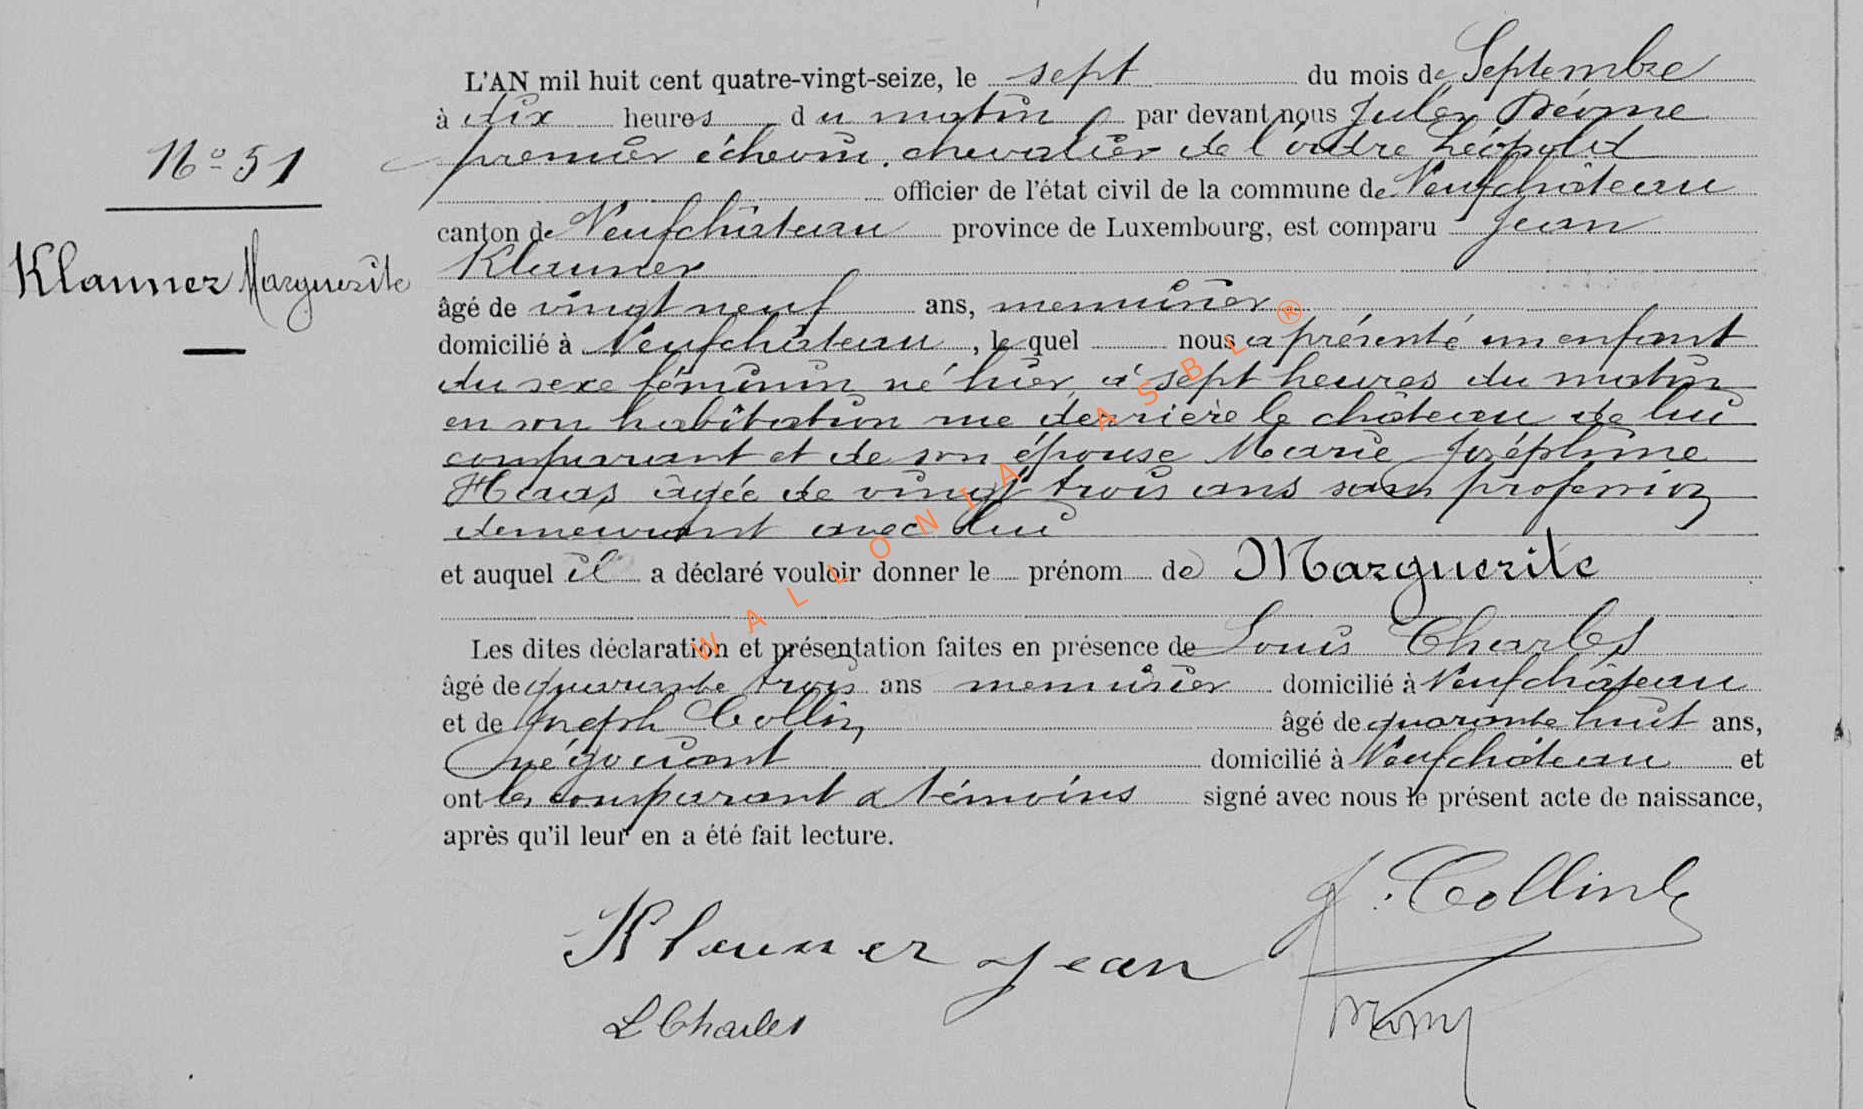 L'AN mil huit cent quatre-vingt-seize, le sept du mois de Septembre
à dix heures du matin par devant nous Jules
N° 51
premier échevin. chevalier de l'ordre Léopold
officier de l'état civil de la commune de Neufchâteau
canton de Neufchâteau province de Luxembourg, est comparu Jean
Klauner Marguerite
Klauner
âgé de vingt neuf ans, menuisier
domicilié à Neufchâteau, lequel nous a présenté un enfant
du sexe féminin né hier à sept heures du matin
en son habitation rue derrière le château de lui
comparant et de son épouse Marie Joséphine
Haas âgée de vingt trois ans sans profession
demeurant avec lui
et auquel il a déclaré vouloir donner le prénom de Marguerite
Les dites déclaration et présentation faites en présence de Louis Charles
âgé de quarante trois ans menuisier domicilié à Neufchâteau
et de Joseph Collin âgé de quarante huit ans,
négociant domicilié à Neufchâteau et
ont les comparant & témoins signé avec nous le présent acte de naissance,
après qu'il leur en a été fait lecture.
J. Collin
Klauner Jean
L Charles
WALLONIA ASBL ®